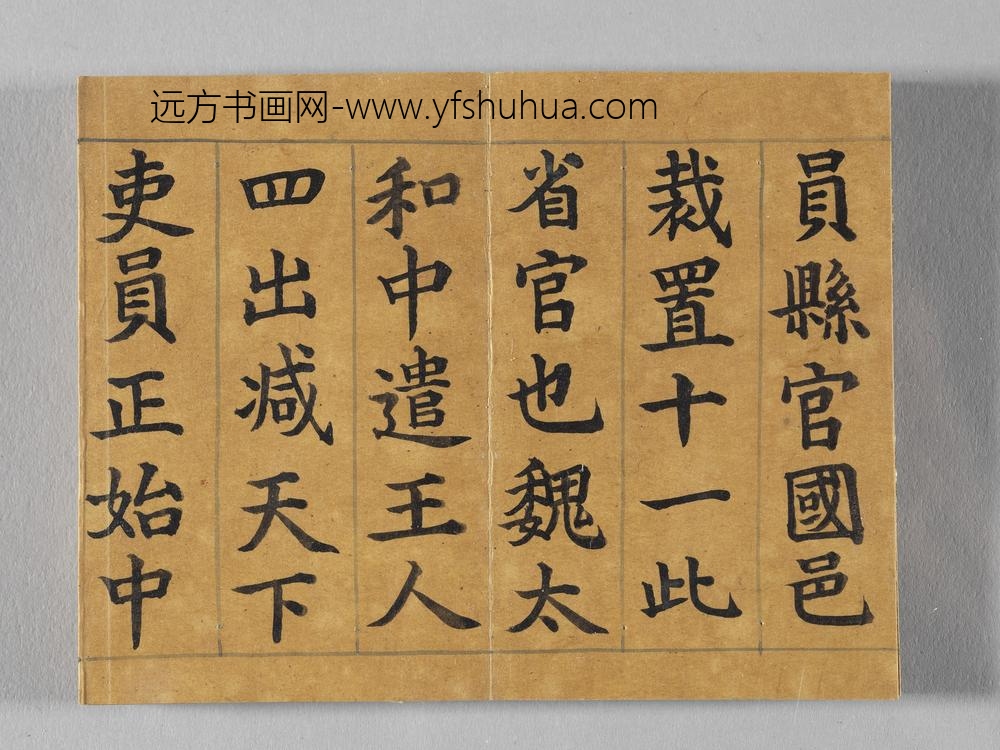 远方书画网-www.yfshuhua.com
員縣官國邑
裁置十一此
省官也魏太
和中遣王人
四出减天下
吏員正始中